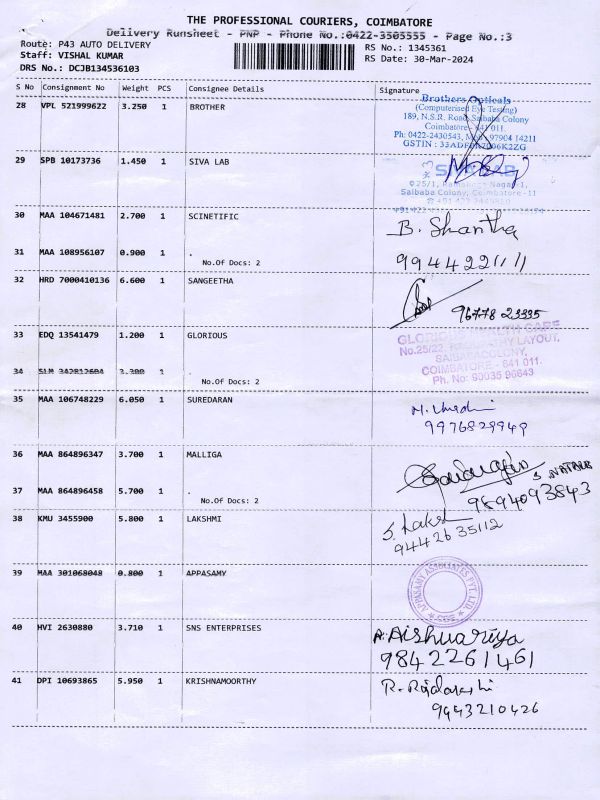 THE PROFESSIONAL COURIERS, COIMBATORE
Delivery Runsheet - PNP - Phone No.:0422-3505555 - Page No.:3
Route: P43 AUTO DELIVERY
RS No.: 1345361
Staff: VISHAL KUMAR
RS Date: 30-Mar-2024
DRS No.: DCJB134536103
S No Consignment No Weight PCS Consignee Details Signature
28 VPL 521999622 3.250 1 BROTHER
Brothers Opticals
(Computerised Eye Testing)
189, N.S.R. Road, Saibaba Colony
Coimbatore - 641 011.
Ph: 0422-2430543, Mob: 97904 14211
GSTIN :
29 SPB 10173736 1.450 1 SIVA LAB
Saibaba Colony, Coimbatore -11
30 MAA 104671481 2.700 1 SCINETIFIC
B. Shantha
31 MAA 108956107 0.900 1 .
No.Of Docs: 2
9944221111
32 HRD 7000410136 6.600 1 SANGEETHA
96778 23335
33 EDQ 13541479 1.200 1 GLORIOUS
GLORIOUS HEALTH CARE
LAYOUT,
SAIBABACOLONY,
COIMBATORE - 641 011.
Ph. No: 90035 96843
34 SLM 342812604 3.300 1
No.Of Docs: 2
35 MAA 106748229 6.050 1 SUREDARAN
9976829949
36 MAA 864896347 3.700 1 MALLIGA
37 MAA 864896458 5.700 1 .
No.Of Docs: 2
9894093843
38 KMU 3455900 5.800 1 LAKSHMI
S. Laksh
9442635112
39 MAA 301068048 0.800 1 APPASAMY
APPASAMY ASSOCIATES PVT. LTD.
CBE
40 HVI 2630880 3.710 1 SNS ENTERPRISES
A. Aishwariya
9842261461
41 DPI 10693865 5.950 1 KRISHNAMOORTHY
R. Rajalakshi
9443210426